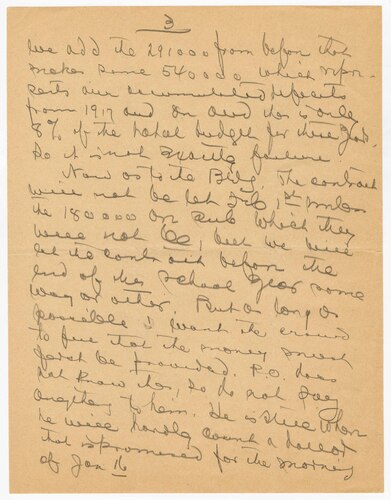 3
we add the 291000 from before that
makes some 540000 which repre-
sents our accumulated deficits
from 1917 and on and this is only
8% of the total budget for these
So it is not exactly failure
Now as to the Bldg. The contract
will not be let Feb 1st unless
the 180000 on sub which they
will not be, but we will
let the contract before the
end of the school year some
way or other. But as long as
possible I want the crowd
to feel that the money must
first be provided. P.O. does
not know this, so do not say
anything to them. He is still where
he will hardly count a dollar
that is promised for the morning
of Jan 16